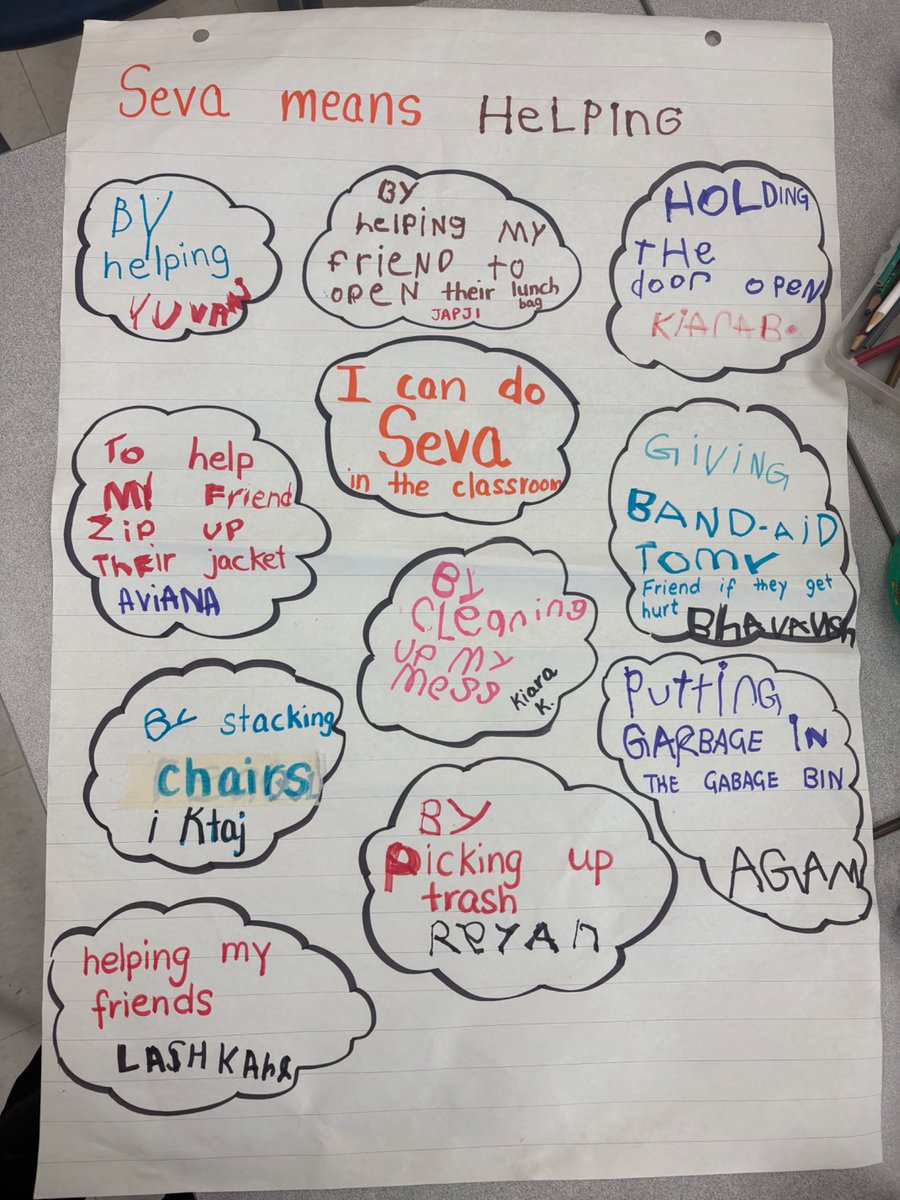 Seva means HeLPinG
BY
helping
YUVRAJ
BY
helPiNg MY
FRieND to
OPEN their lunch
bag
JAPJI
HOLDING
THe
door OPEN
KIARA B.
I can do
Seva
in the classroom
To help
MY Friend
Zip UP
THEir jacket
AViANA
GiViNG
BAND-AiD
TOMY
Friend if they get
hurt BhAVAUSh
BY
CLeaning
UP MY
Mess
Kiara
K.
PUTTiNG
GARBAGE IN
THE GABAGE BIN
AGAM
BY stacking
chairs
iKtaj
BY
Picking up
trash
REYAn
helping my
friends